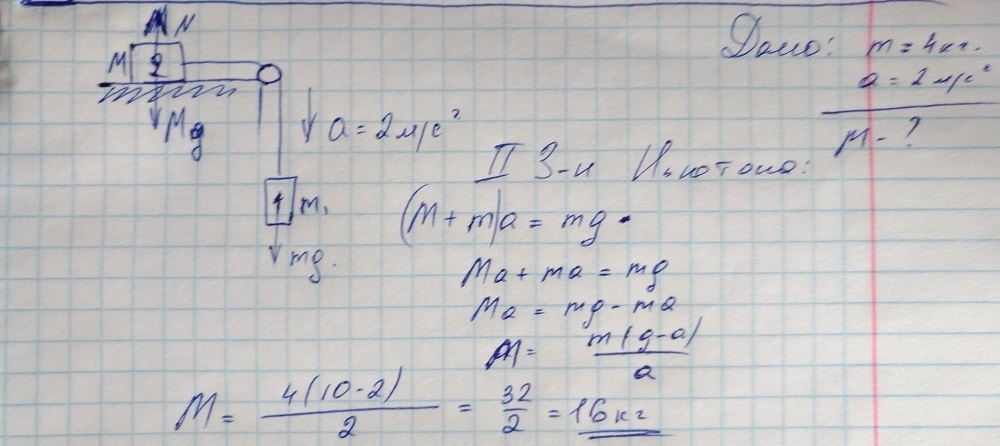 N
M 2
Mg
a = 2 м/с²
1 m₁
mg.
Дано: m = 4 кг.
a = 2 м/с²
M - ?
II З-н Ньютона:
(M + m)a = mg.
Ma + ma = mg
Ma = mg - ma
M = m(g-a)/a
M = 4(10-2)/2 = 32/2 = 16 кг